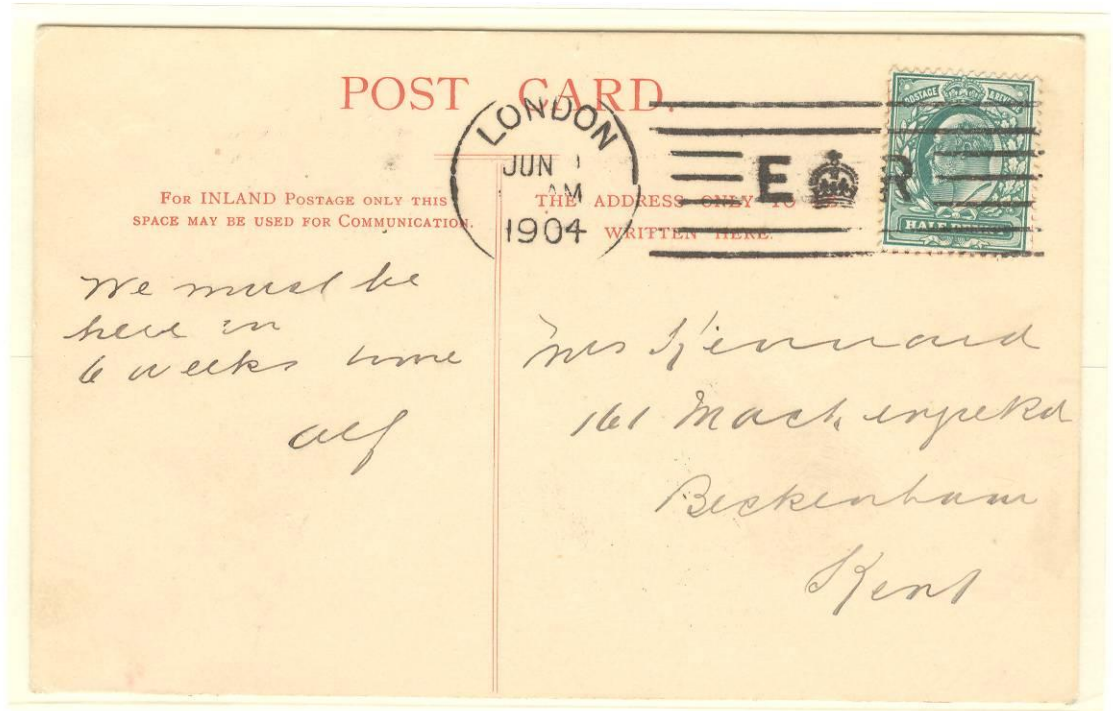 POST CARD.
LONDON
JUN 1
AM
1904
E R
POSTAGE & REVE
HALF PENNY
FOR INLAND POSTAGE ONLY THIS
SPACE MAY BE USED FOR COMMUNICATION.
THE ADDRESS ONLY TO BE
WRITTEN HERE.
We must be
here in
6 weeks time
Alf
Mrs Kennard
161 Mackenzie Rd
Beckenham
Kent